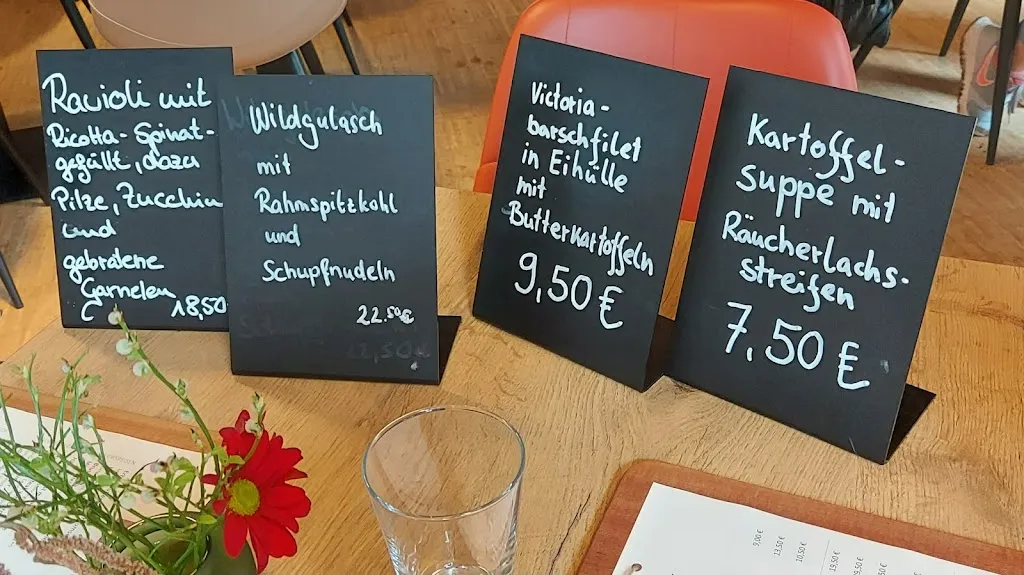 Ravioli mit
Ricotta-Spinat-
gefüllt, dazu
Pilze, Zucchini
und
gebratene
Garnelen
18,50
Wildgulasch
mit
Rahmspitzkohl
und
Schupfnudeln
22.50€
22,50€
Victoria-
barschfilet
in Eihülle
mit
Butterkartoffeln
9,50 €
Kartoffel-
suppe mit
Räucherlachs-
streifen
7,50 €
9,00 €
13,50 €
10,50 €
19,50 €